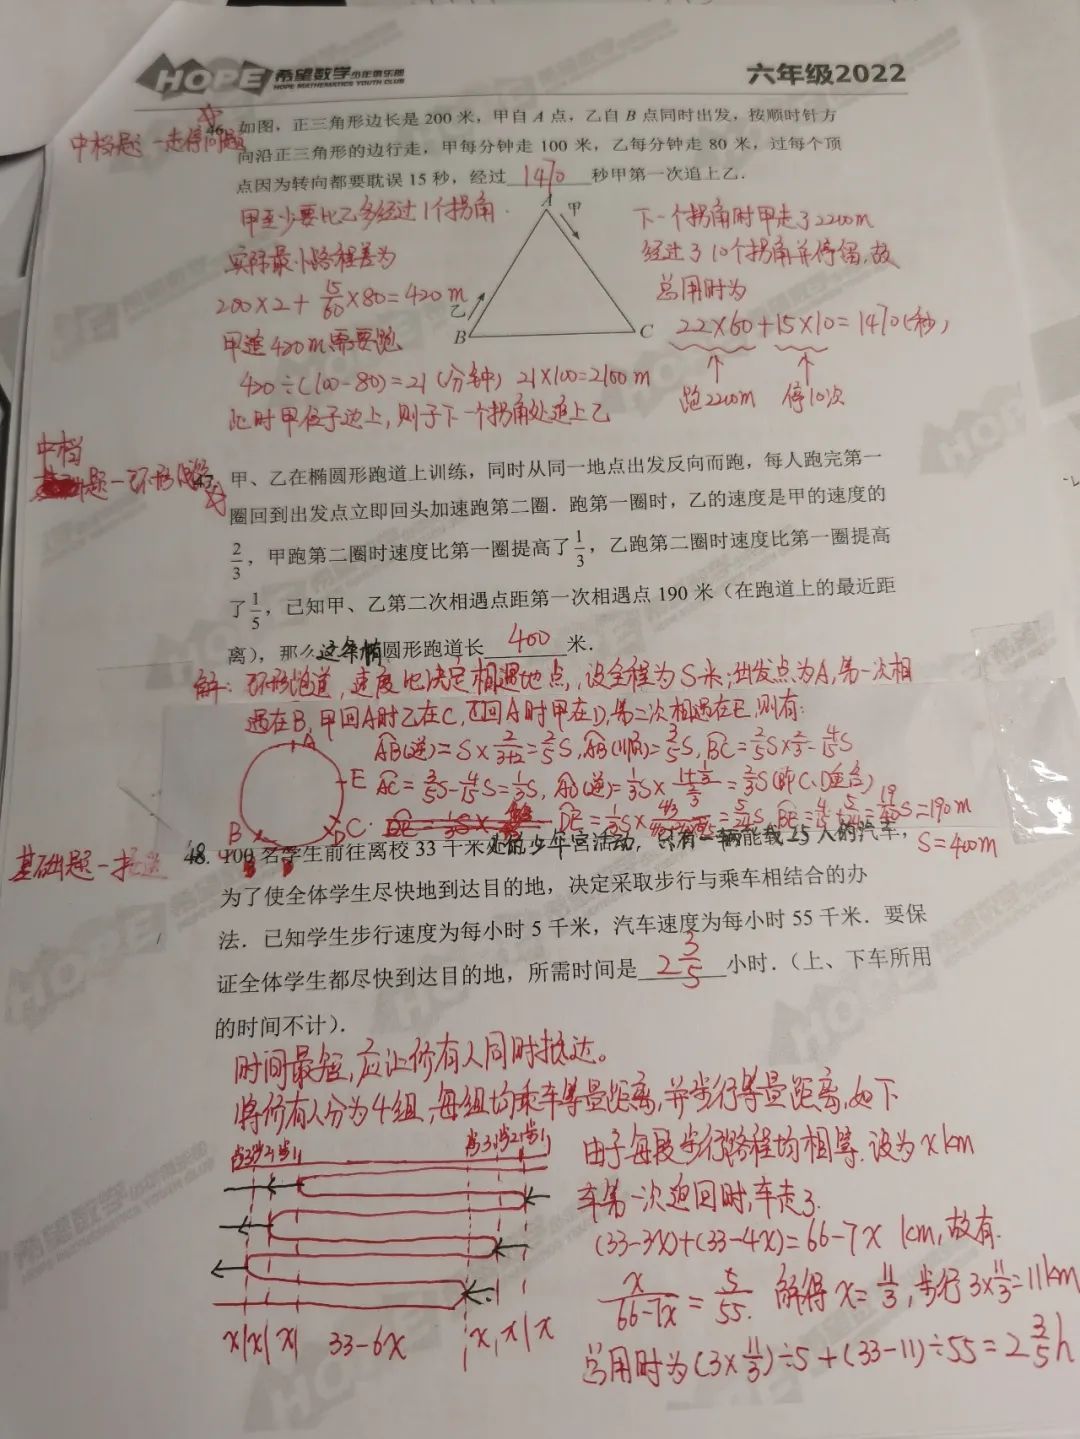 HOPE 希望数学 少年俱乐部
HOPE MATHEMATICS YOUTH CLUB
六年级2022
中档题一走停问题
46. 如图，正三角形边长是 200 米，甲自 A 点，乙自 B 点同时出发，按顺时针方
向沿正三角形的边行走，甲每分钟走 100 米，乙每分钟走 80 米，过每个顶
点因为转向都要耽误 15 秒，经过 1470 秒甲第一次追上乙．
甲至少要比乙多经过1个拐角．
实际最小路程差为
200×2+15/60×80=420 m
甲追420m需要跑
420÷(100-80)=21(分钟) 21×100=2100m
此时甲位于边上，则于下一个拐角处追上乙
A
甲
乙
B
C
下一个拐角时甲走了2200m
经过了10个拐角并停留，故
总用时为
22×60+15×10=1470(秒)
跑2200m 停10次
中档
题一环形
47. 甲、乙在椭圆形跑道上训练，同时从同一地点出发反向而跑，每人跑完第一
圈回到出发点立即回头加速跑第二圈．跑第一圈时，乙的速度是甲的速度的
2/3，甲跑第二圈时速度比第一圈提高了1/3，乙跑第二圈时速度比第一圈提高
了1/5，已知甲、乙第二次相遇点距第一次相遇点 190 米（在跑道上的最近距
离），那么这条椭圆形跑道长 400 米．
解：环形跑道，速度比决定相遇地点，设全程为S米；出发点为A，第一次相
遇在B，甲回A时乙在C，乙回A时甲在D，第二次相遇在E，则有：
AB(逆)=S×2/(3+2)=2/5S，AB(顺)=3/5S，BC=2/5S×2/3=4/15S
AC=3/5S-4/15S=1/3S，
=2/3S(即C、D重合)
=5/24S，BE=4/15+5/24=19/40S=190m
S=400m
A
E
B
D
C
基础题一接送
48. 100 名学生前往离校 33 千米处的少年宫活动，只有一辆能载 25 人的汽车，
为了使全体学生尽快地到达目的地，决定采取步行与乘车相结合的办
法．已知学生步行速度为每小时 5 千米，汽车速度为每小时 55 千米．要保
证全体学生都尽快到达目的地，所需时间是 2 3/5 小时．（上、下车所用
的时间不计）．
时间最短，应让所有人同时抵达。
将所有人分为4组，每组均乘车等量距离，并步行等量距离，如下
步3步2步1
步3步2步1
x|x|x| 33-6x |x|x|x
由于每段步行路程均相等，设为x km
车第一次返回时，车走了
(33-3x)+(33-4x)=66-7x km，故有
x/(66-7x)=5/55. 解得x=11/3，步行3×11/3=11km
总用时为(3×11/3)÷5+(33-11)÷55=2 3/5 h